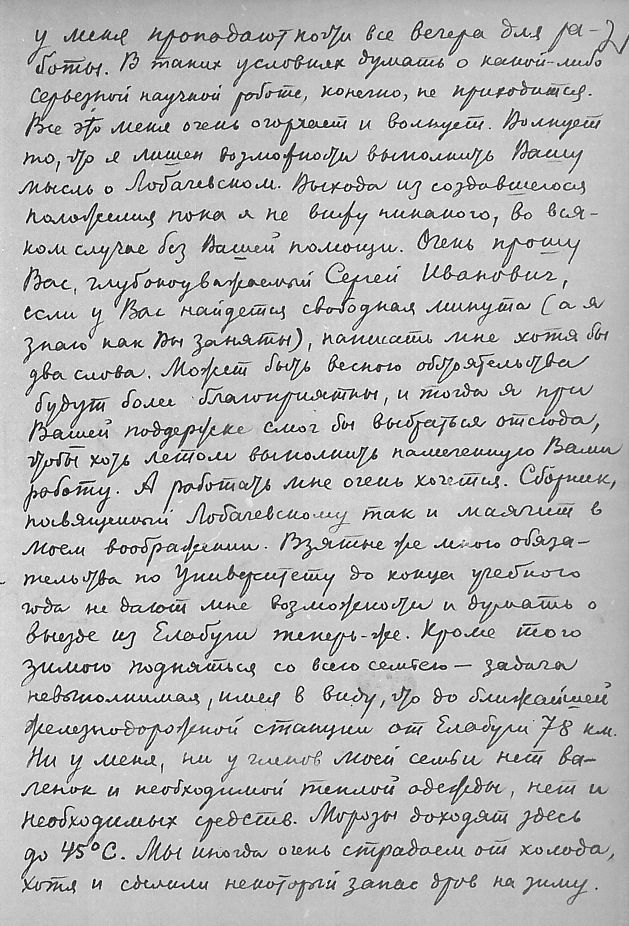 у меня пропадают почти все вечера для ра-
боты. В таких условиях думать о какой-либо
серьезной научной работе, конечно, не приходится.
Все это меня очень огорчает и волнует. Волнует
то, что я лишен возможности выполнить Вашу
мысль о Лобачевском. Выхода из создавшегося
положения пока я не вижу никакого, во вся-
ком случае без Вашей помощи. Очень прошу
Вас, глубокоуважаемый Сергей Иванович,
если у Вас найдется свободная минута (а я
знаю как Вы заняты), написать мне хотя бы
два слова. Может быть весною обстоятельства
будут более благоприятны, и тогда я при
Вашей поддержке смог бы выбраться отсюда,
чтобы хоть летом выполнить намеченную Вами
работу. А работать мне очень хочется. Сборник,
посвященный Лобачевскому так и маячит в
моем воображении. Взятые же мною обяза-
тельства по Университету до конца учебного
года не дают мне возможности и думать о
выезде из Елабуги теперь-же. Кроме того
зимою подняться со всею семьею — задача
невыполнимая, имея в виду, что до ближайшей
железнодорожной станции от Елабуги 78 км.
Ни у меня, ни у членов моей семьи нет ва-
ленок и необходимой теплой одежды, нет и
необходимых средств. Морозы доходят здесь
до 45°С. Мы иногда очень страдаем от холода,
хотя и сделали некоторый запас дров на зиму.